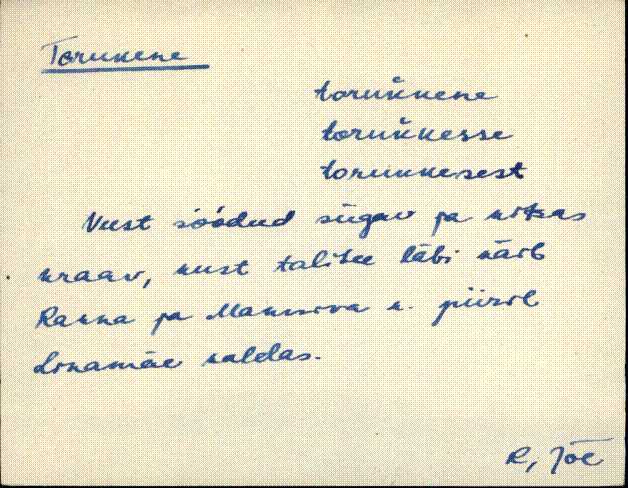 Torukene
torukkene
torukkesse
torukkesest
Vest söödud sügav ja kitsas
kraav, kust talitee läbi käib
Ranna ja Manniva k. piiril
Linamäe kaldas.
R. Jõe